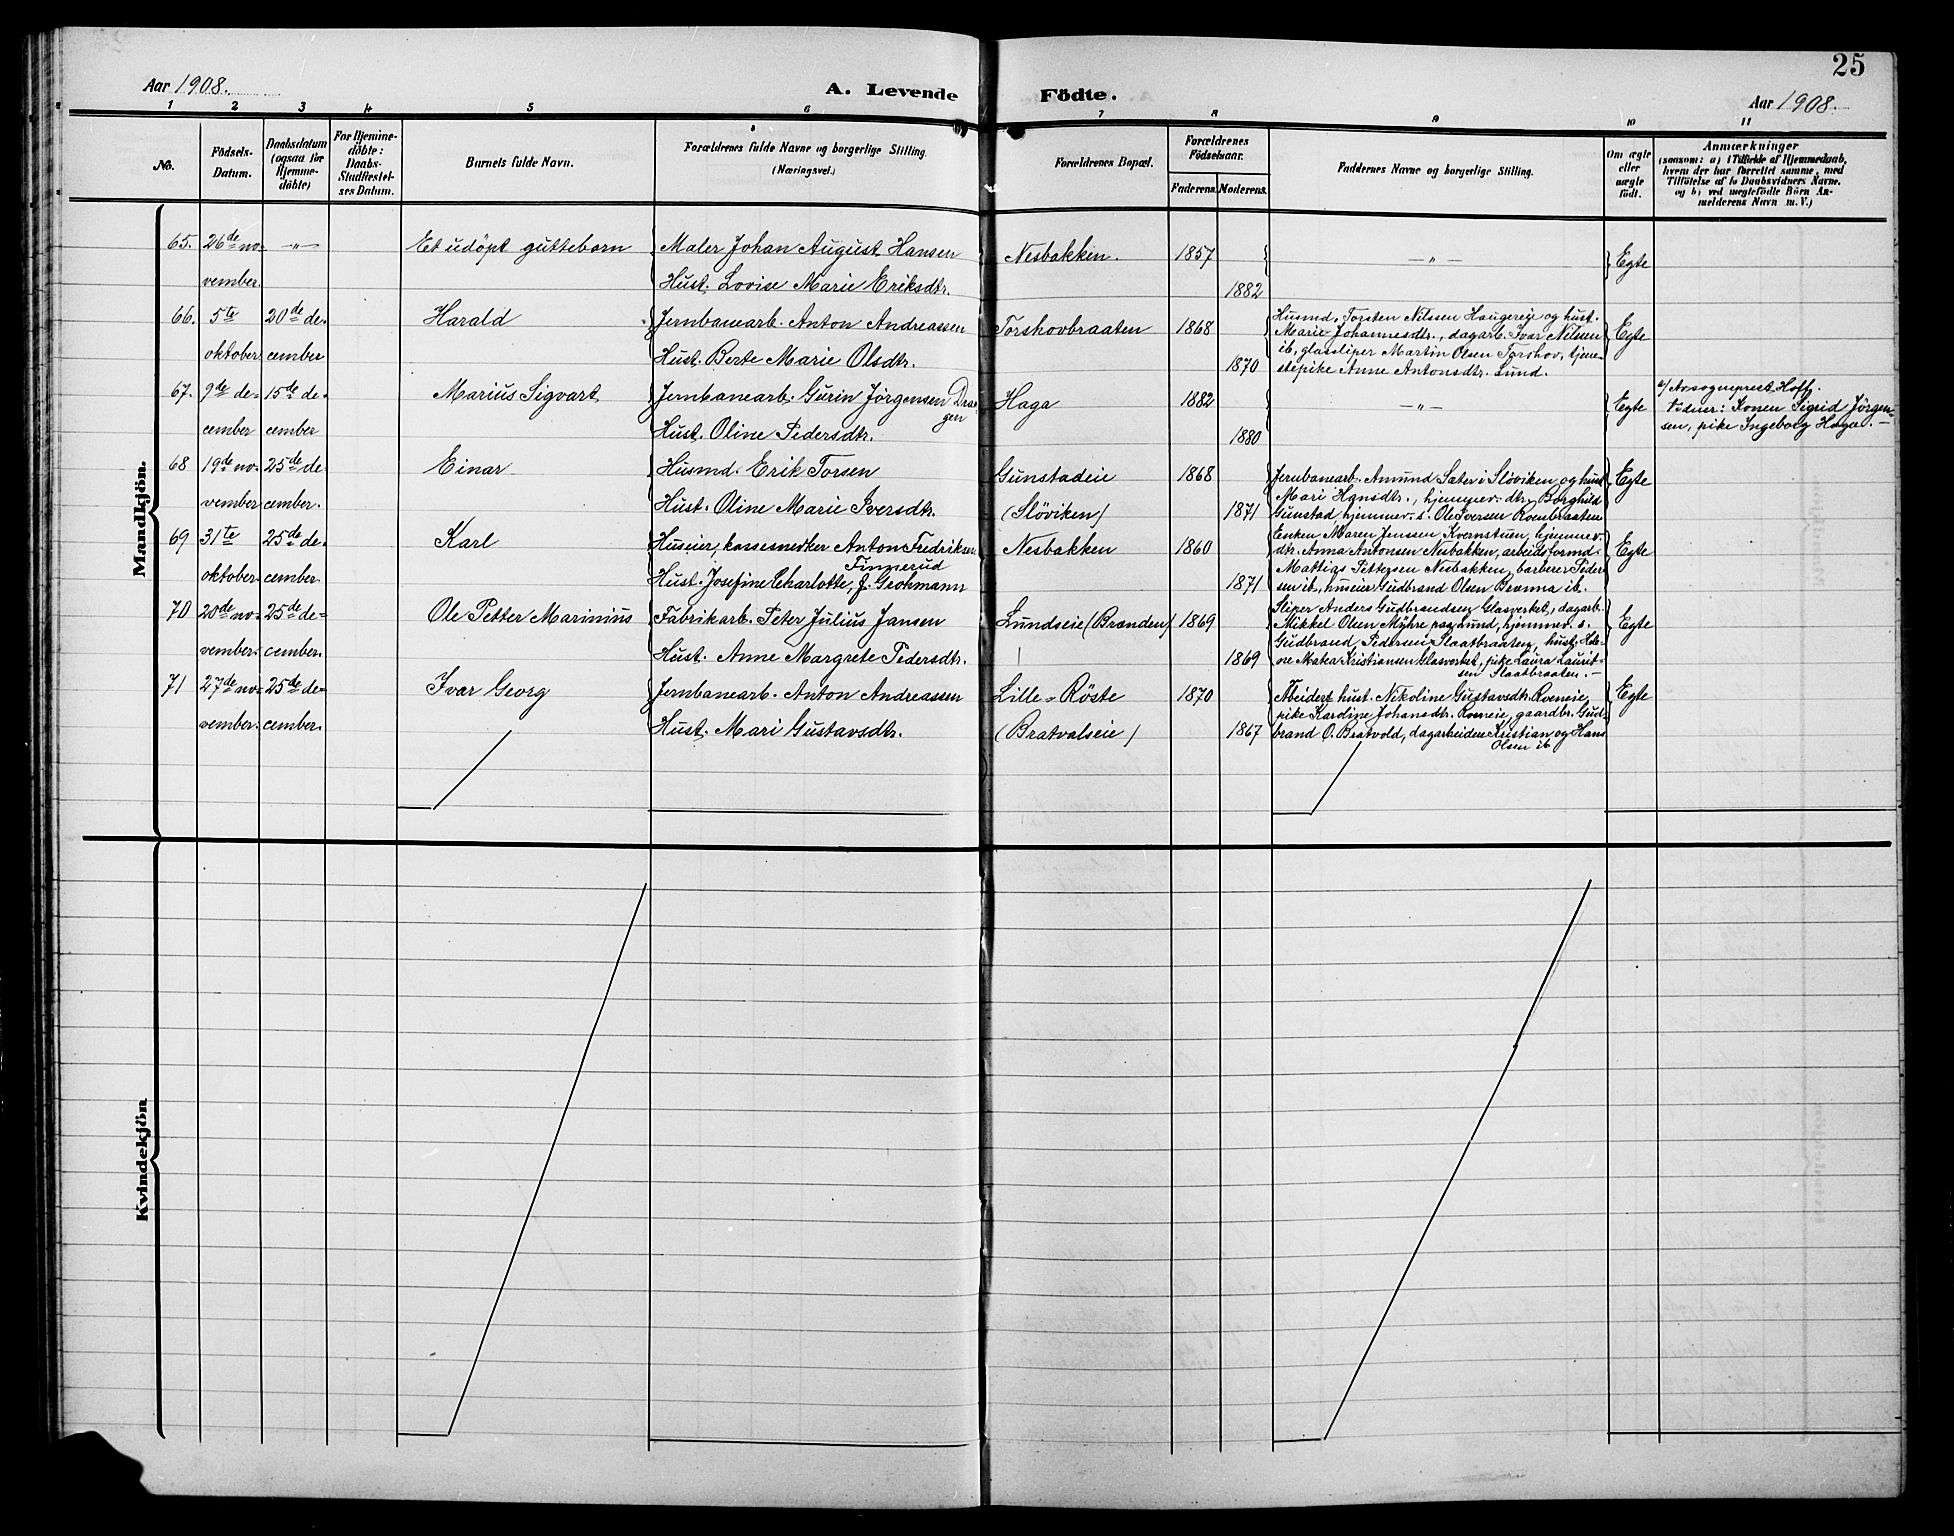 25
Aar 1908.
A. Levende Födte.
Aar 1908.
1 2 3 4 5 6 7 8 9 10 11
No.
Födsels-Datum.
Daabsdatum (ogsaa for Hjemme-döbte)
For Hjemme-döbte: Daabs-Stadfæstel-ses Datum.
Barnets fulde Navn.
Forældrenes fulde Navne og borgerlige Stilling.
(Næringsvei.)
Forældrenes Bopæl.
Forældrenes Födselsaar.
Faderens. Moderens.
Faddernes Navne og borgerlige Stilling.
Om ægte eller uægte födt.
Anmærkninger
(saasom: a) i Tilfælde af Hjemmedaab,
hvem der har forrettet samme, med
Tilföielse af to Daabsvidners Navne.
og b) ved uægtefödte Börn An-
melderens Navn m. V.)
Mandkjön.
65. 26de no- vember. —"— Et udöpt guttebarn
Maler Johan August Hansen
Hust. Lovise Marie Eriksdtr.
Nesbakken. 1857 1882 —"— Egte
66. 5te oktober 20de de- cember Harald
Jernbanearb. Anton Andreassen
Hust. Berte Marie Olsdtr.
Torshovbraaten 1868 1870
Husmd. Torsten Nilssen Haugereie og hust.
Marie Johannesdtr., dagarb. Ivar Nilsen
ib, glassliper Martin Olsen Torshov, tjene-
stepike Anne Antonsdtr. Lund.
Egte
67. 9de de- cember 15de de- cember Marius Sigvart
Jernbanearb. Gurin Jörgensen Dra-
gen
Hust. Oline Pedersdtr.
Haga 1882 1880 —"— Egte
a/ Av sogneprest Hoff.
Vidner: Konen Sigrid Jörgen-
sen, pike Ingeborg Haga. —
68 19de no- vember 25de de- cember. Einar
Husmd. Erik Torsen
Hust. Oline Marie Iversdtr.
Gunstadeie
(Slöviken) 1868 1871
Jernbanearb. Amund Sater i Slöviken og hust
Mari Hansdtr., hjemmev. dtr. Borghild
Gunstad hjemmev. s. Ole Iversen Roenbraaten
Egte
69 31te oktober 25de de- cember. Karl
Huseier, kassesnedker Anton Fredriksen
Finnerud
Hust. Josefine Charlotte, f. Grohmann
Nesbakken 1860 1871
Enken Maren Jensen Kvernstuen, hjemmev.
dtr. Anna Antonsen Nesbakken, arbeidsformd.
Mattias Pettersen Nesbakken, barberer Peder-
sen ib., huseier Gudbrand Olsen Bromma ib.
Egte
70 20de no- vember. 25de de- cember. Ole Petter Marinius
Fabrikarb. Peter Julius Jansen
Hust. Anne Margrete Pedersdtr.
Lundseie (Brænden) 1869 1869
Sliper Anders Gudbrandsen Glasverket, dagarb.
Mikkel Olsen Myhre paa Lund, hjemmev. s.
Gudbrand Pedersen Slaatbraaten, hust. Hel-
ene Matea Kristiansen Glasverket, pike Laura Laurit-
sen Slaatbraaten. —
Egte
71 27de no- vember. 25de de- cember. Ivar Georg
Jernbanearb. Anton Andreassen
Hust. Mari Gustavsdtr.
Lille-Röste
(Bratvalseie) 1870 1867
Arbeiders hust. Nikoline Gustavsdtr. Roeneie,
pike Karoline Johansdtr. Roeneie, gaardbr. Gud-
brand O. Bratvold, dagarbeidere Kristian og Hans
Olsen ib
Egte
Kvindekjön